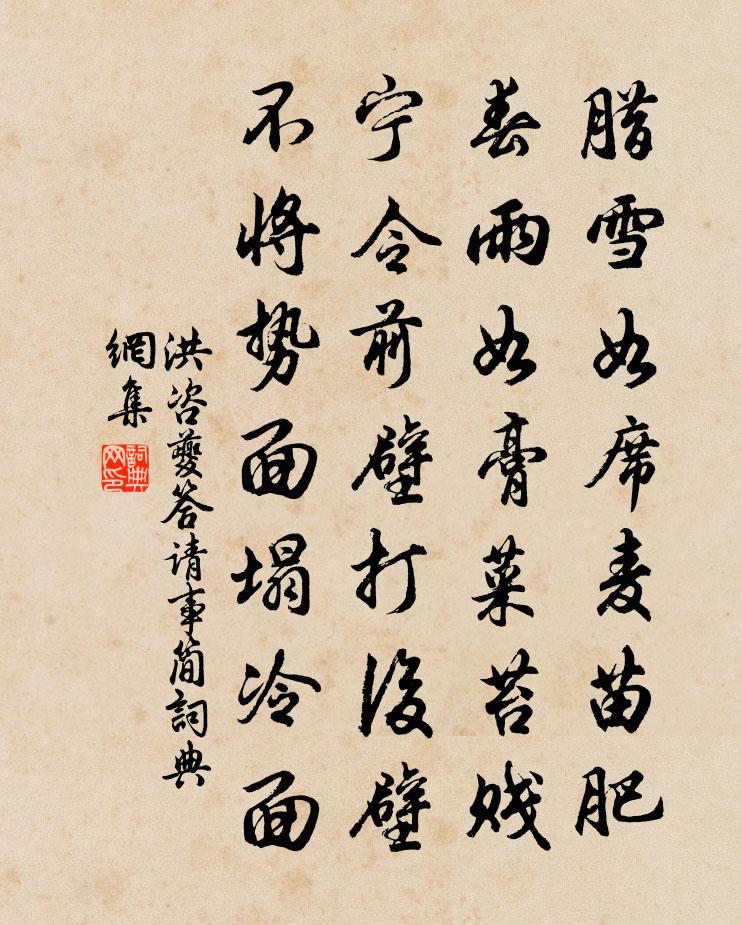 腊雪如席麦苗肥
春雨如膏菜苔贱
宁令前壁打後壁
不将势面塌冷面
洪咨夔答请事简詞典
網集
詞典
网印